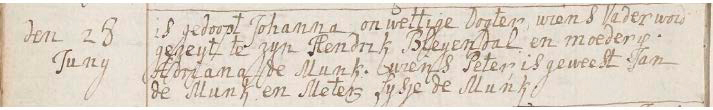 den 28 is gedoopt Johanna onwettige Dogter, wiens Vader word
Juny gezeyt te zyn Hendrik Bleyendal en moeder is
Adriana de Munk. wiens Peter is geweest Jan
de Munk en Meter Sytje de Munk.